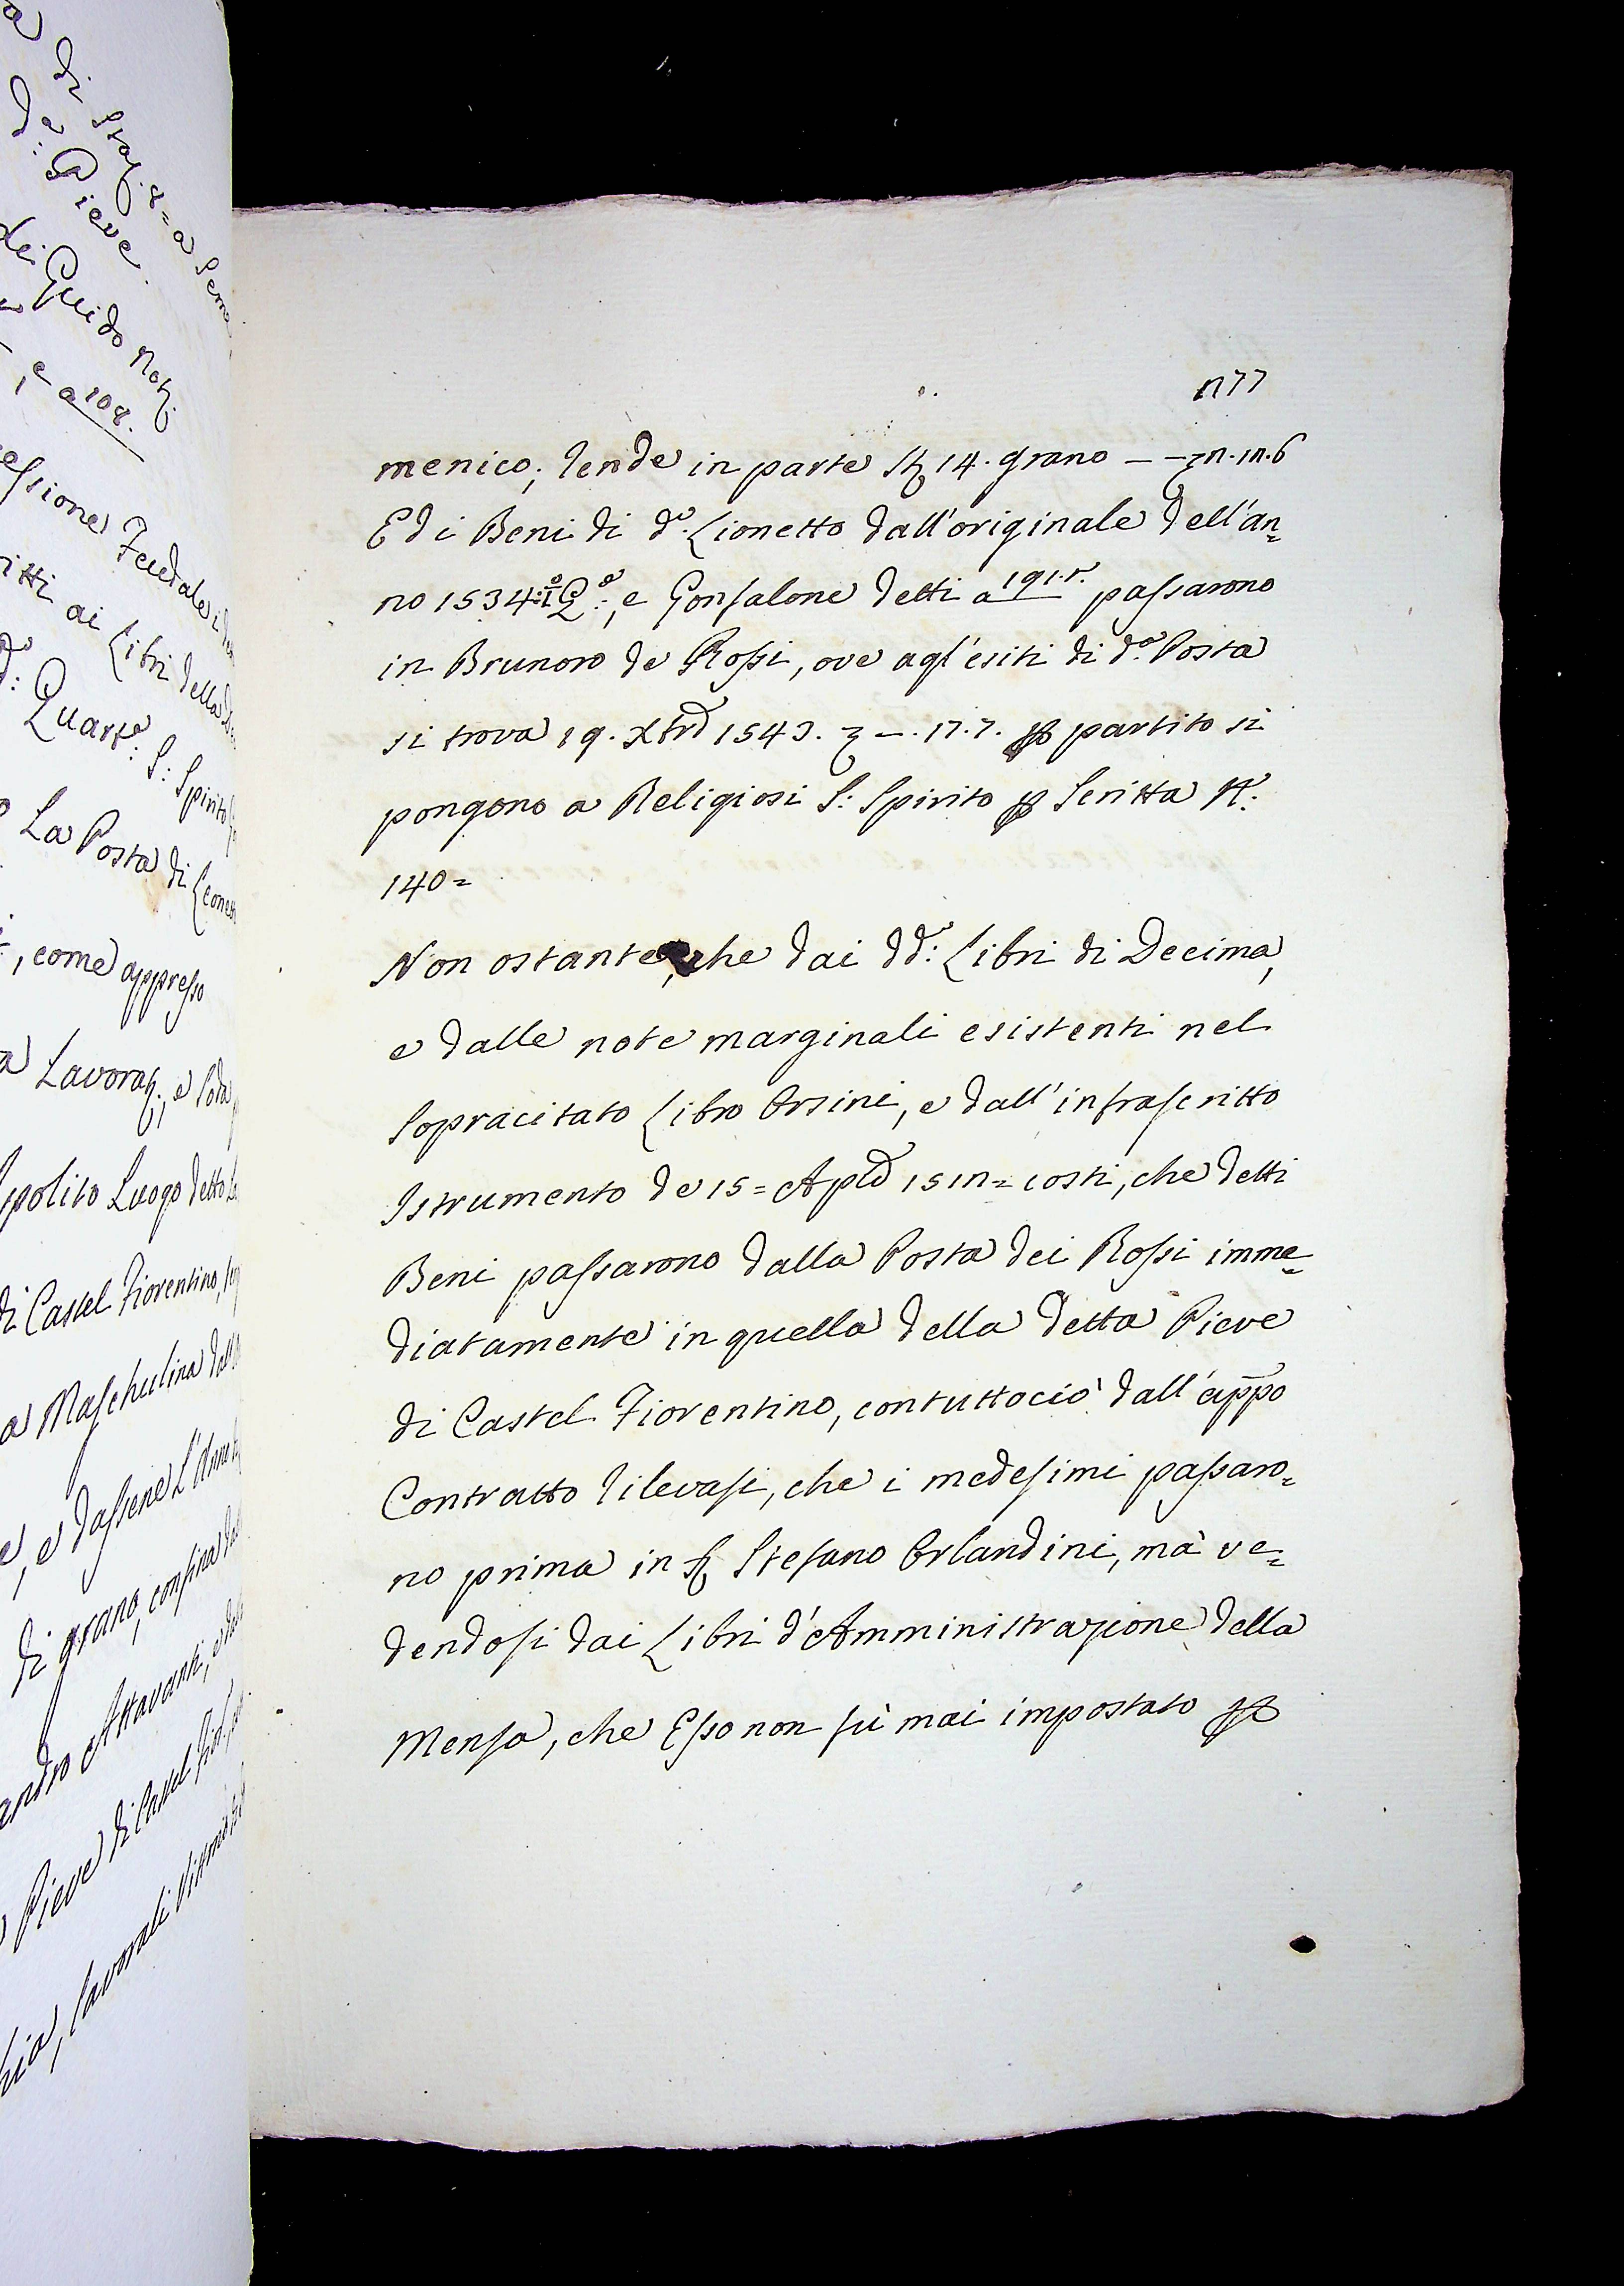 a di Staj. 8=a Seme
d:ª Pieve
dei Guido Notʒ.
, e a 108.
essione Feudale
itti ai Libri della
d:º Quarte: S: Spirito
La Posta di Leonett
, come appresso
a Lavoraʒ., e Soda
Ippolito Luogo detto
di Castel Fiorentino,
a Maschulina dall
e, e dassene l'Anno
di grano, confina da
andro Attavanti, e da
Pieve di Castel Fior:
hia, lavorali Vittorio
n77
menico, rende in parte Sta 14. grano – – ʒ n.1n.6
Ed i Beni di d.º Lionetto dall'originale dell'an=
no 1534: e Gonfalone detti a 191.r. passarono
in Brunoro de Rossi, ove agl'esiti di d.ª Posta
si trova 19. Xbre 1543. ʒ –. 17.7. p partito si
pongono a Religiosi S: Spirito p Scritta N.º:
140=
Non ostante, che dai dd.i: Libri di Decima,
e dalle note marginali esistenti nel
sopracitato Libro Orsini, e dall'infrascritto
Istrumento de 15= Aple 151n= costi, che detti
Beni passarono dalla Posta dei Rossi imme=
diatamente in quella della detta Pieve
di Castel Fiorentino, contuttociò dall'appo
Contratto rilevasi, che i medesimi passaro=
no prima in S. Stefano Orlandini, mà ve=
dendosi dai Libri d'Amministrazione della
Mensa, che Esso non fù mai impostato p